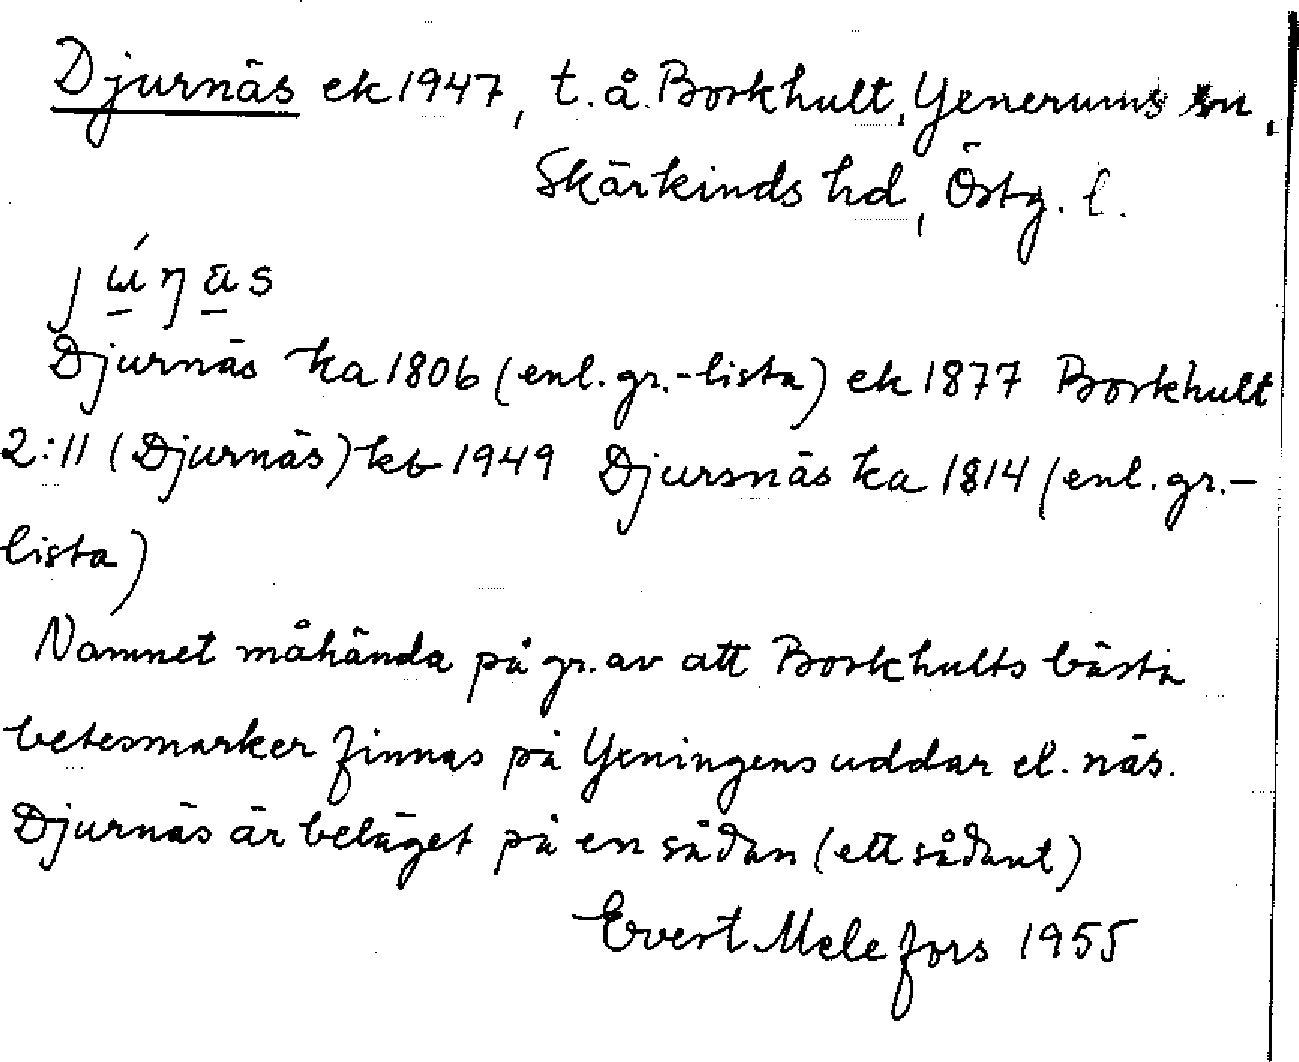 Djurnäs ek 1947, t. å. Borkhult, Yxnerums sn,
Skärkinds hd, Östg. l.
Djurnäs ka 1806 (enl. gr.-lista) ek 1877 Borkhult
2:11 (Djurnäs) kb 1949 Djursnäs ka 1814 (enl. gr.-
lista)
Namnet måhända på gr. av att Borkhults bästa
betesmarker finnas på Yxningens uddar el. näs.
Djurnäs är beläget på en sådan (ett sådant)
Evert Melefors 1955